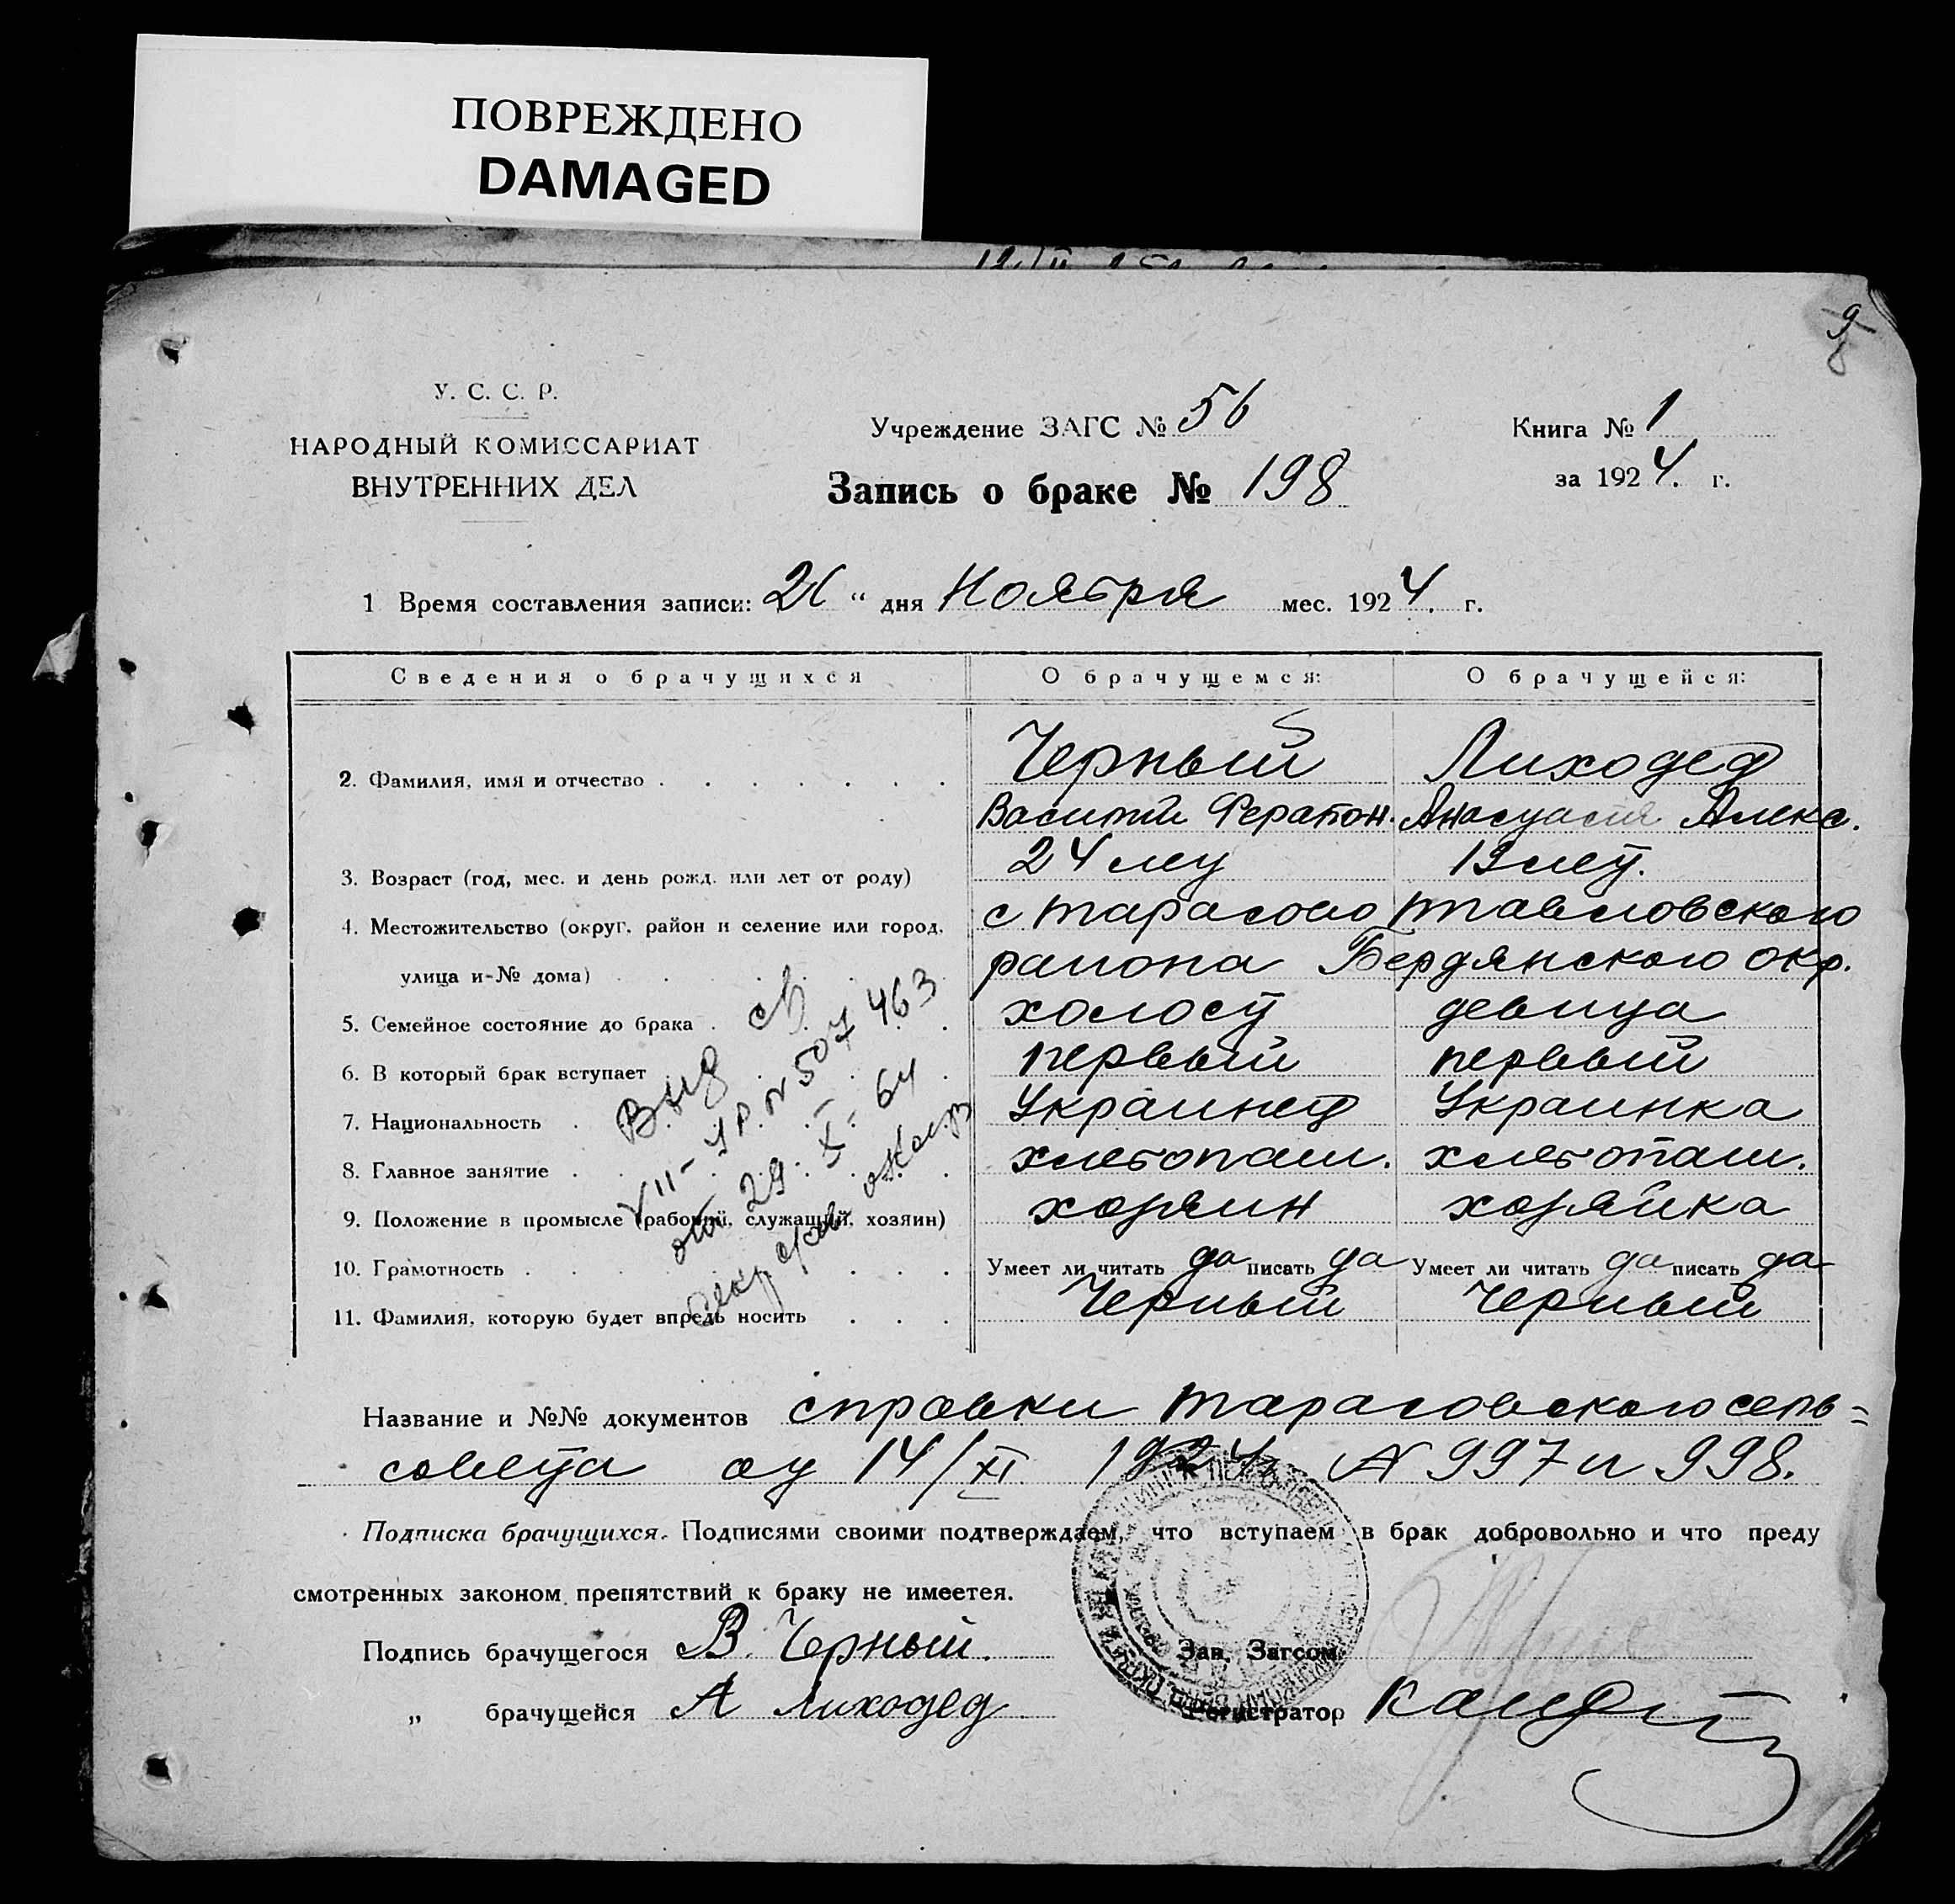 ПОВРЕЖДЕНО
DAMAGED
9
У. С. С. Р.
НАРОДНЫЙ КОМИССАРИАТ
ВНУТРЕННИХ ДЕЛ
Учреждение ЗАГС № 56
Запись о браке № 198
Книга № 1
за 1924. г.
1 Время составления записи: 26 “ дня Ноября мес. 1924. г.
Сведения о брачущихся О брачущемся: О брачущейся:
2. Фамилия, имя и отчество Черный Лиходед
Василий Ферапон. Анастасия Алекс.
3. Возраст (год, мес. и день рожд. или лет от роду) 24 лет 19 лет.
4. Местожительство (округ, район и селение или город, с Тарасово
улица и № дома) района Бердянского окр.
5. Семейное состояние до брака холост девица
6. В который брак вступает первый первый
7. Национальность Украинец Украинка
8. Главное занятие хлебопаш. хлебопаш.
9. Положение в промысле (рабочий, служащий, хозяин) хозяин хозяйка
10. Грамотность Умеет ли читать да писать да Умеет ли читать да писать да
11. Фамилия, которую будет впредь носить Черный Черный
Выд св
VII-ЯР. № 507463
от 29. X. 64
Название и №№ документов справки Тарасовского сель=
совета от 14/XI 1924г. № 997 и 998.
Подписка брачущихся. Подписями своими подтверждаем, что вступаем в брак добровольно и что преду
смотренных законом препятствий к браку не имеетея.
Подпись брачущегося В. Черный. Зав. Загсом
„ брачущейся А Лиходед Регистратор